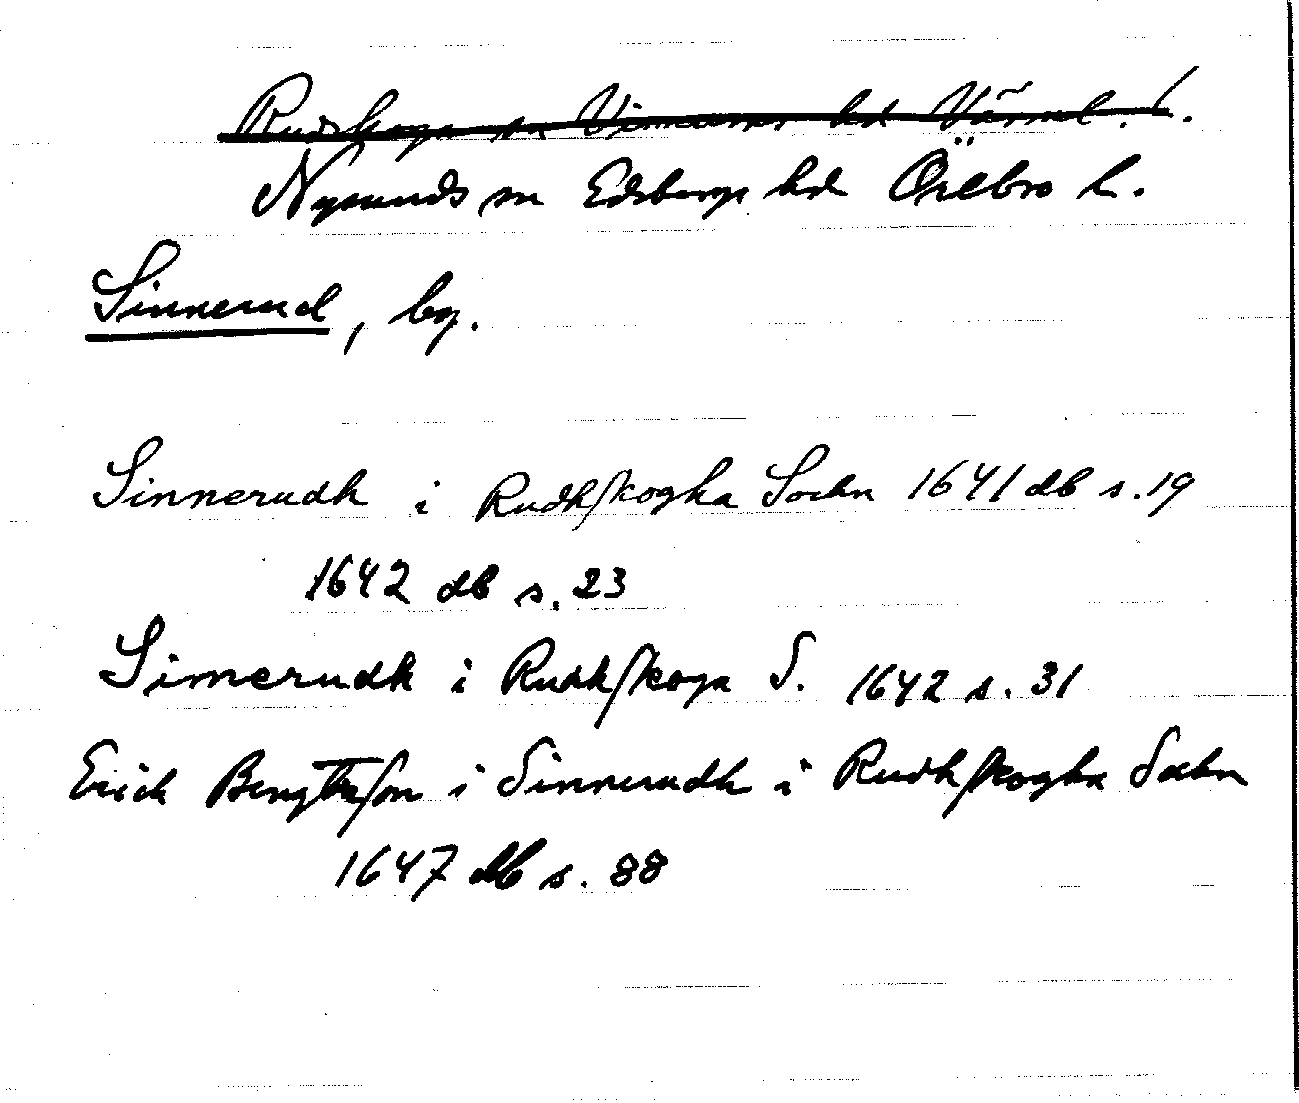 Rudskoga sn Visnums hd Värml. l.
Nysunds sn Edsbergs hd Örebro l.
Sinnerud, by.
Sinnerudh i Rudhskogha Sochn 1641 db s.19
1642 db s. 23
Simerudh i Rudhskoga S. 1642 s. 31
Erich Bengtsson i Sinnerudh i Rudhskogha Sochn
1647 db s. 88